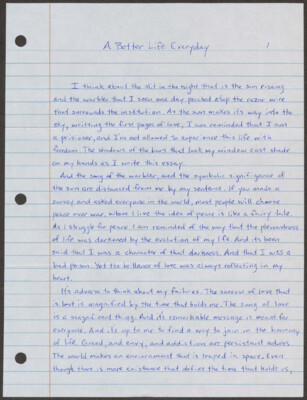 A Better Life Everyday
1
I think about the slit in the night that is the sun rising
and the warbler that I seen one day perched atop the razor wire
that surrounds the institution. As the sun makes its way into the
sky, writting the first pages of love, I am reminded that I am
a prisoner, and I'm not allowed to experience this life with
freedom. The shadows of the bars that lock my window cast shade
on my hands as I write this essay.
And the song of the warbler, and the symbolic significance of
the sun are distanced from me by my sentence. If you made a
survey and asked everyone in the world, most people will choose
peace over war, where I live the idea of peace is like a fairy tale.
As I struggle for peace I am reminded of the way that the pleasantness
of life was darkened by the evolution of my life. And its been
said that I was a character of that darkness. And that I was a
bad person. Yet the of love was always reflecting in my
heart.
Its adverse to think about my failures. The sorrow of love that
is lost is magnified by the time that holds me. The song of love
is a magnificent thing. And its remarkable message is meant for
everyone. And its up to me to find a way to join in the harmony
of life. Greed, and envy, and addiction are persistant adverses.
The world makes an environment that is traped in space. Even
though there is more existance that defies the time that holds us,